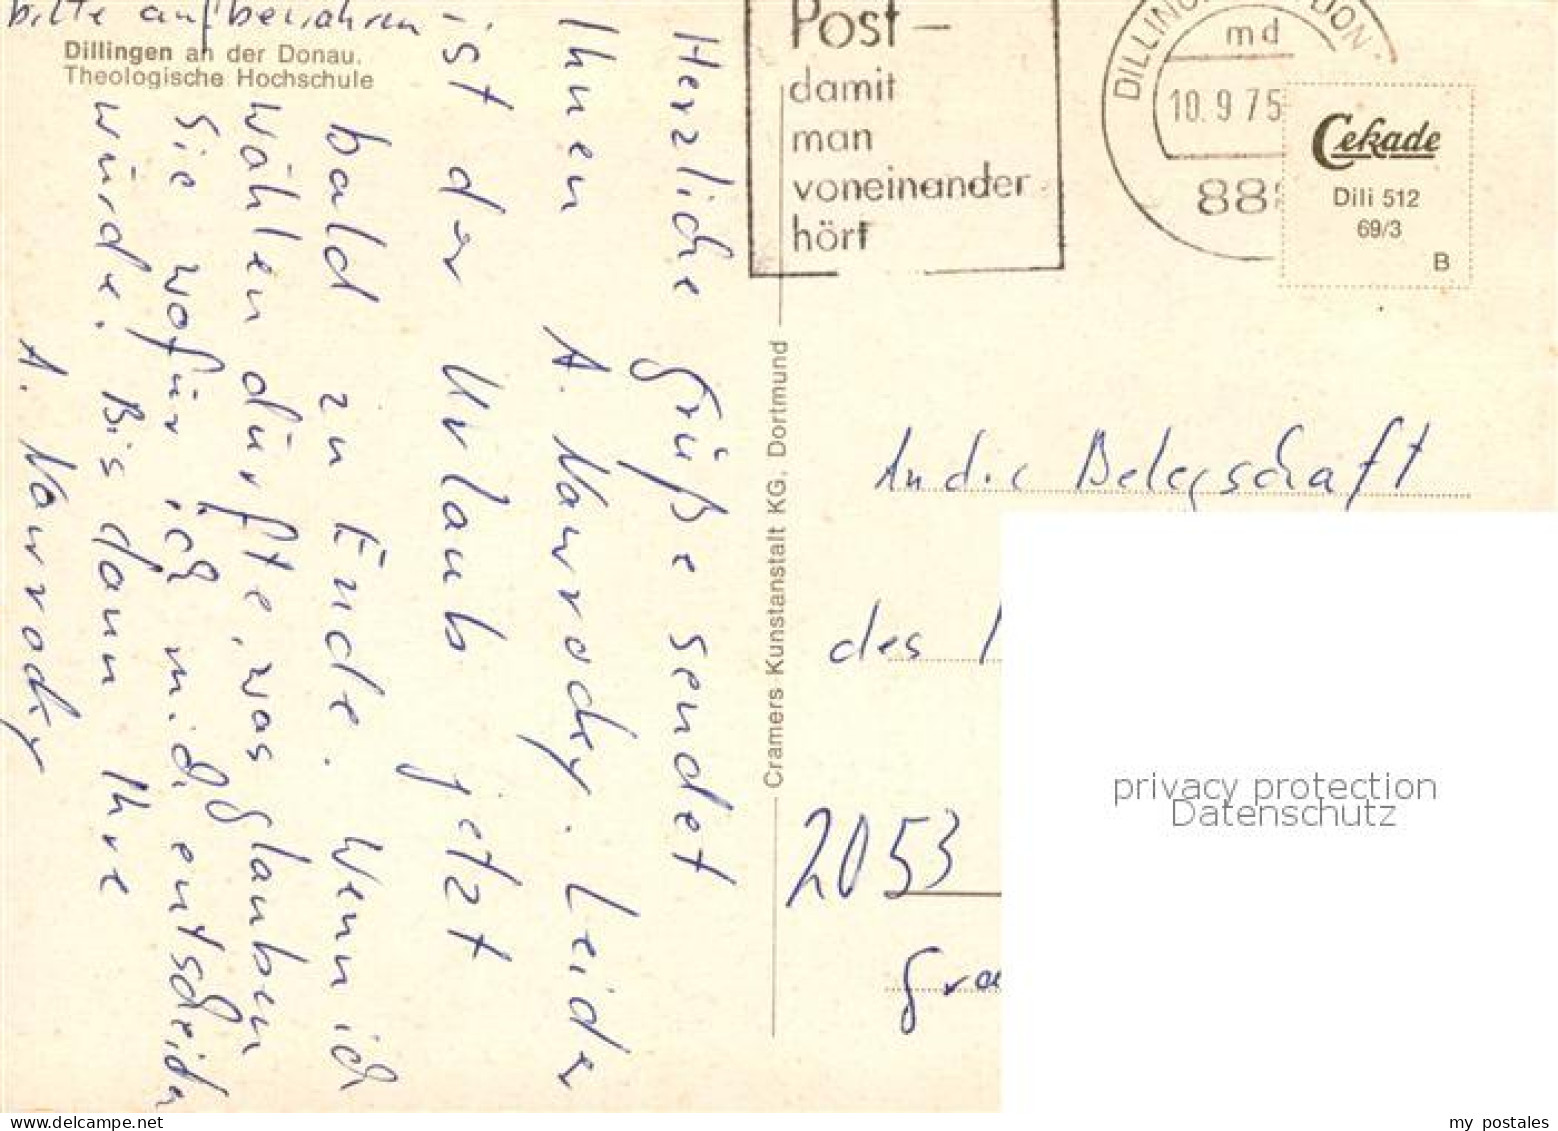 bitte aufbewahren
Dillingen an der Donau.
Theologische Hochschule
Herzliche Grüße sendet
Ihnen A. Nawrocky. Leider
ist der Urlaub jetzt
bald zu Ende. Wenn ich
wählen dürfte, was glauben
Sie wofür ich mich entscheiden
würde. Bis dann Ihre
A. Nawrocky
Cramers Kunstanstalt KG, Dortmund
Post –
damit
man
voneinander
hört
DILLING DON
md
10.9.75
88
Cekade
Dili 512
69/3
B
An die Belegschaft
des
2053
privacy protection
Datenschutz
my postales